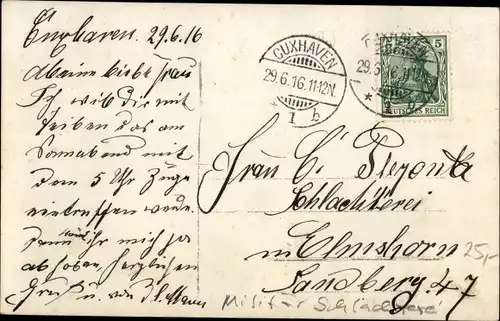 Cuxhaven. 29.6.16
Meine liebe Frau
Ich will dir mit
teilen das am
Sonnabend mit
dem 5 Uhr Zuge
eintreffen werde.
Dann könnt ihr mich ja
abholen. Herzlichen
Gruß u. von
CUXHAVEN
29.6.16.11-12N.
1 b
CUXHAVEN
29.6.16.11-12N.
* 1 b
5
DEUTSCHES REICH
Frau C.
Schlachterei
in Elmshorn
Sandberg 47
25,-
Militär Schlachterei